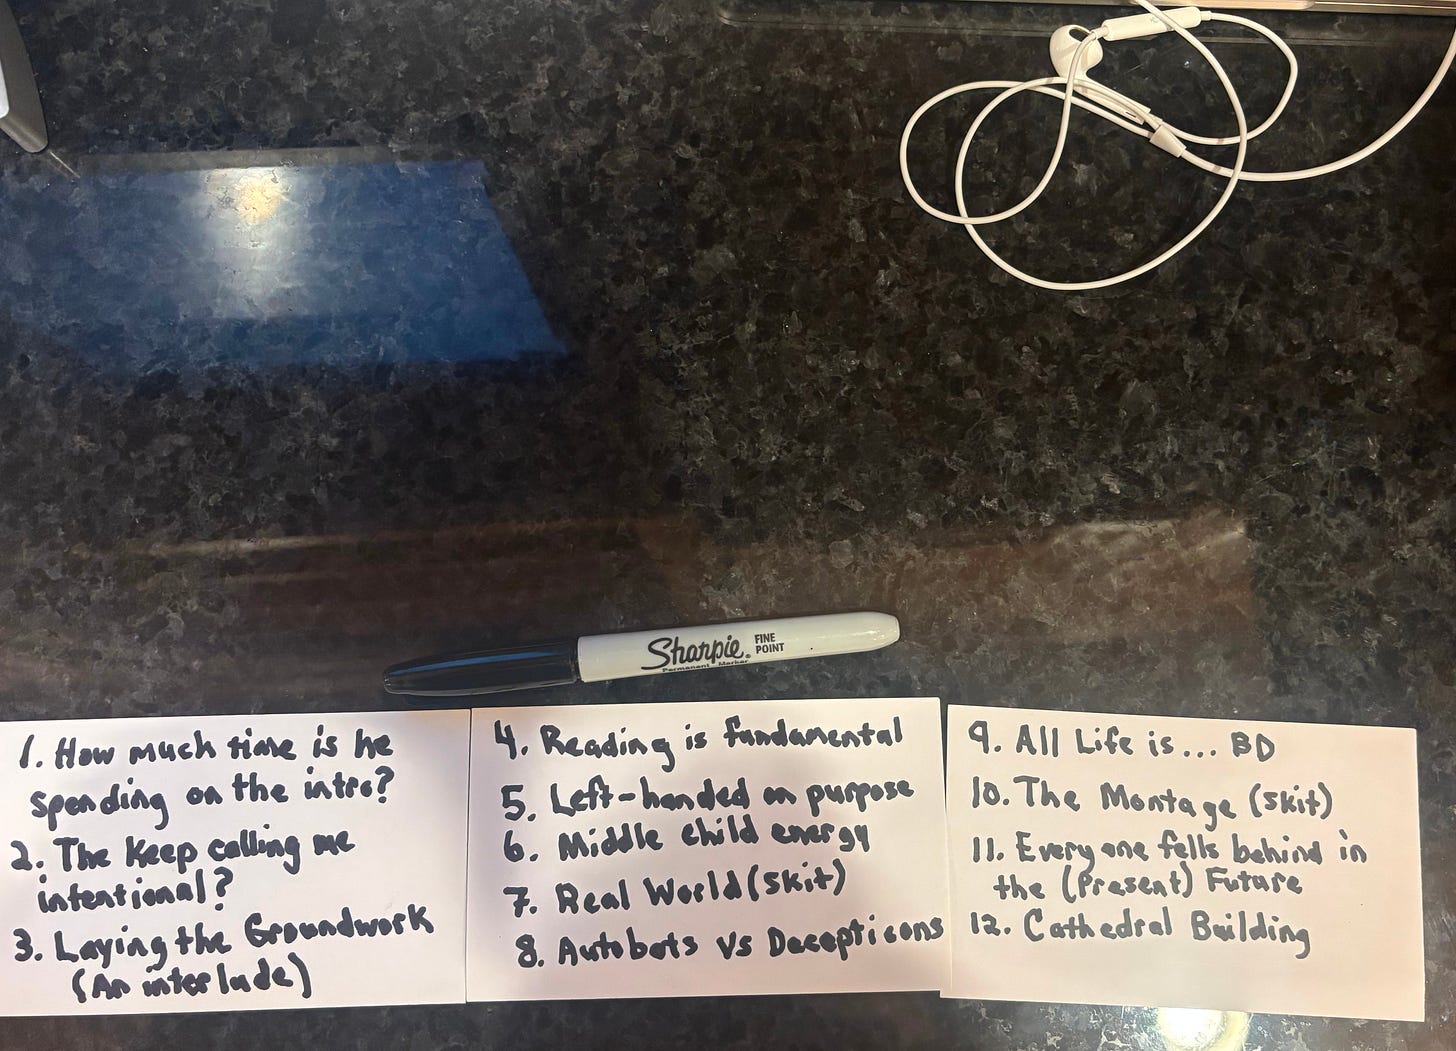 Sharpie®
FINE
POINT
Permanent Marker
1. How much time is he
spending on the intro?
2. The Keep calling me
intentional?
3. Laying the Groundwork
(An interlude)
4. Reading is fundamental
5. Left-handed on purpose
6. Middle child energy
7. Real World (skit)
8. Autobots vs Decepticons
9. All Life is... BD
10. The Montage (skit)
11. Everyone fells behind in
the (Present) Future
12. Cathedral Building